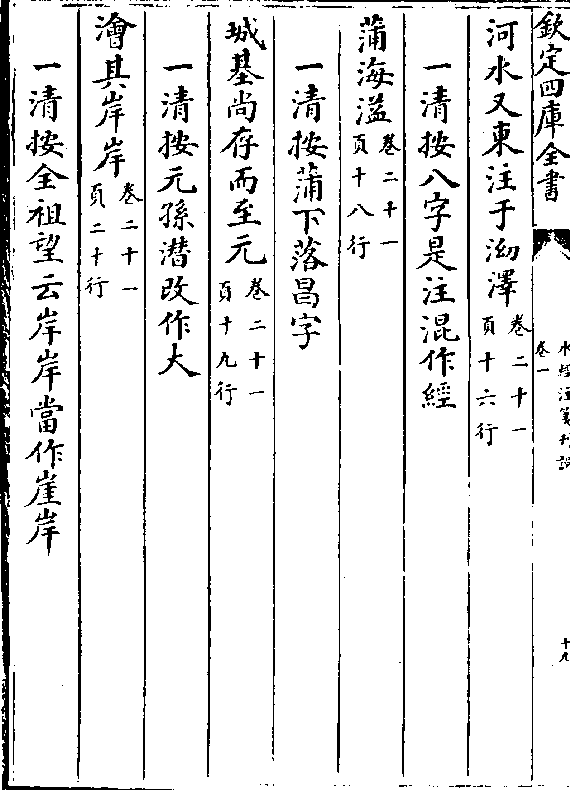 欽定四庫全書
水經注箋刊誤
卷一
十九
河水又東注于泑澤卷二十一頁十六行
一清按八字是注混作經
蒲海溢卷二十一頁十八行
一清按蒲下落昌字
城基尚存而至元卷二十一頁十九行
一清按元孫潜改作大
澮其岸岸卷二十一頁二十行
一清按全祖望云岸岸當作崖岸